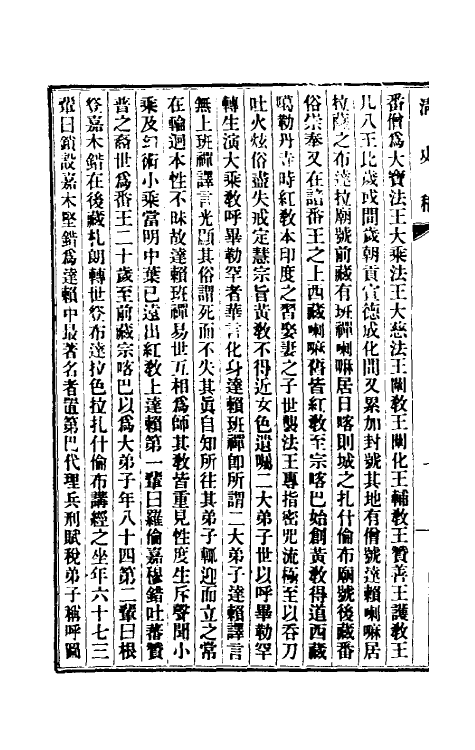 清史稿
番僧爲大寶法王大乘法王大慈法王闡教王闡化王輔教王贊善王護教王
凡八王比歲或間歲朝貢宣德成化間又累加封號其地有僧號達賴喇嘛居
拉薩之布達拉廟號前藏有班禪喇嘛居日喀則城之扎什倫布廟號後藏番
俗崇奉又在諸番王之上西藏喇嘛舊皆紅教至宗喀巴始創黃教得道西藏
噶勒丹寺時紅教本印度之習娶妻之子世襲法王專指密咒流極至以吞刀
吐火炫俗盡失戒定慧宗旨黃教不得近女色遺囑二大弟子世以呼畢勒罕
轉生演大乘教呼畢勒罕者華言化身達賴班禪卽所謂二大弟子達賴譯言
無上班禪譯言光顯其俗謂死而不失其眞自知所往其弟子輒迎而立之常
在輪迴本性不昧故達賴班禪易世互相爲師其教皆重見性度生斥聲聞小
乘及幻術小乘當明中葉已遠出紅教上達賴第一輩曰羅倫嘉穆錯吐蕃贊
普之裔世爲番王二十歲至前藏宗喀巴以爲大弟子年八十四第二輩曰根
登嘉木錯在後藏札朗轉世登布達拉色拉扎什倫布講經之坐年六十七三
輩曰鎖設嘉木堅錯爲達賴中最著名者置第巴代理兵刑賦稅弟子稱呼圖